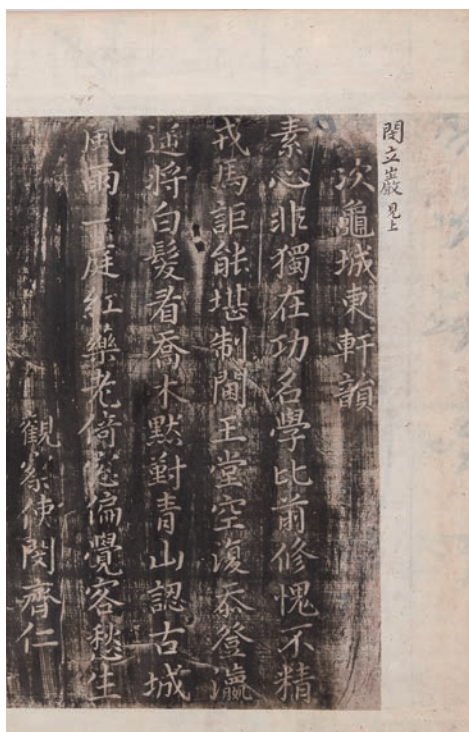 閔立巖見上
次龜城東軒韻
素心非獨在功名學比前修愧不精
戎馬詎能堪制閫玉堂空復忝登瀛
将白髮看喬木默對青山認古城
風雨一庭紅藥老倚窓偏覺客愁生
觀察使閔齊仁